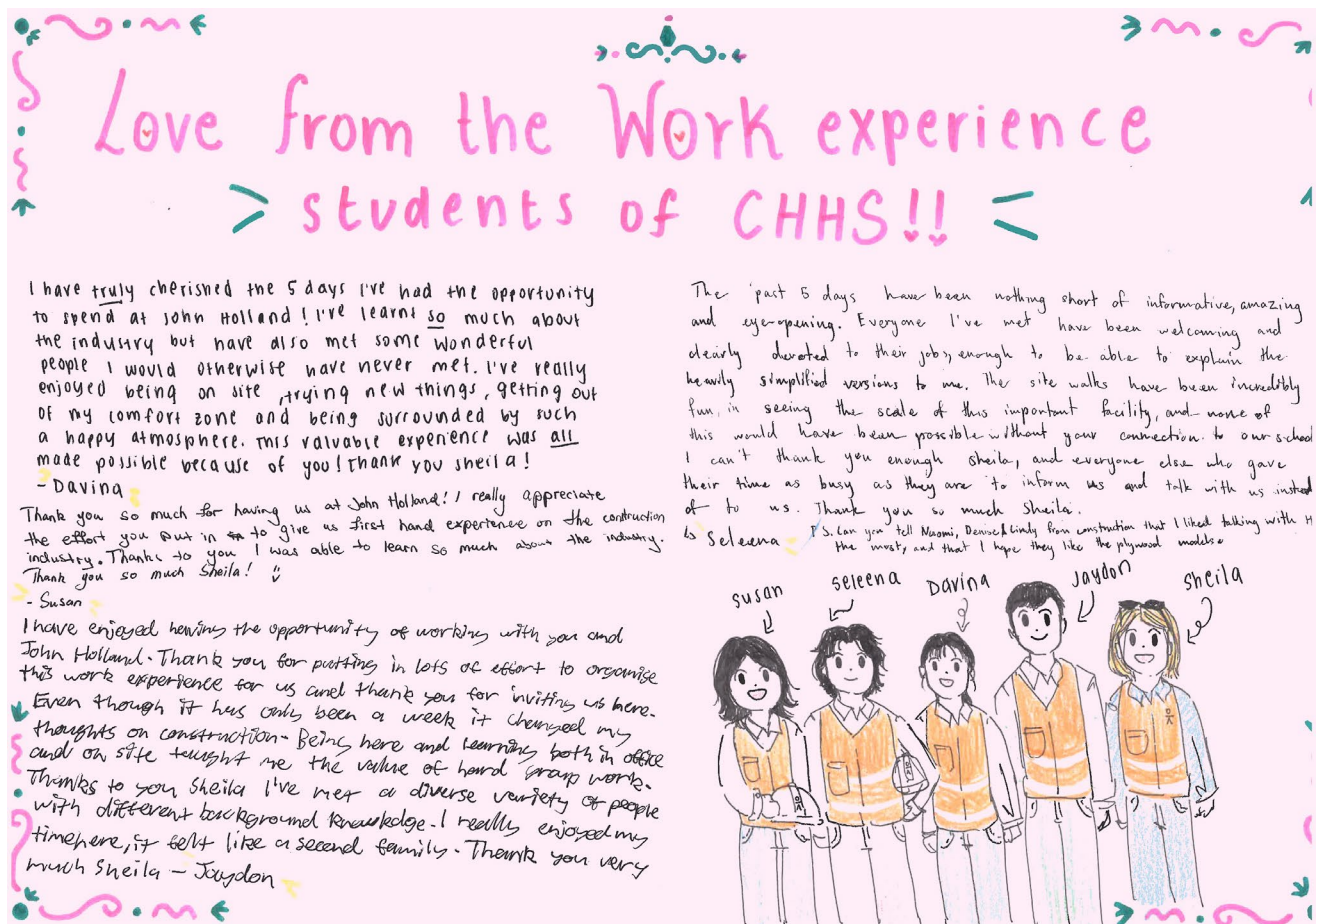 Love from the Work experience
> students of CHHS!! <
I have truly cherished the 5 days I've had the opportunity
to spend at John Holland! I've learnt so much about
the industry but have also met some wonderful
people I would otherwise have never met. I've really
enjoyed being on site, trying new things, getting out
of my comfort zone and being surrounded by such
a happy atmosphere. This valuable experience was all
made possible because of you! Thank you sheila!
- Davina
Thank you so much for having us at John Holland! I really appreciate
the effort you put in to give us first hand experience on the construction
industry. Thanks to you I was able to learn so much about the industry.
Thank you so much Sheila!
- Susan
I have enjoyed having the opportunity of working with you and
John Holland. Thank you for putting in lots of effort to organise
this work experience for us and thank you for inviting us here.
Even though it has only been a week it changed my
thoughts on construction. Being here and learning both in office
and on site taught me the value of hard group work.
Thanks to you Sheila I've met a diverse variety of people
with different background knowledge. I really enjoyed my
time here, it felt like a second family. Thank you very
much Sheila - Jaydon
The past 5 days have been nothing short of informative, amazing
and eye-opening. Everyone I've met have been welcoming and
clearly devoted to their jobs, enough to be able to explain the
heavily simplified versions to me. The site walks have been incredibly
fun, in seeing the scale of this important facility, and none of
this would have been possible without your connection to our school
I can't thank you enough sheila, and everyone else who gave
their time as busy as they are to inform us and talk with us instead
of to us. Thank you so much Sheila.
Seleena
P.S. Can you tell Naomi, Denise & Cindy from construction that I liked talking with
the most, and that I hope they like the plywood models.
susan
seleena
Davina
Jaydon
sheila